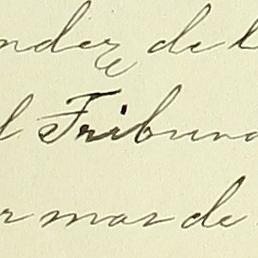 ndez de l
l Tribuna
r mas de